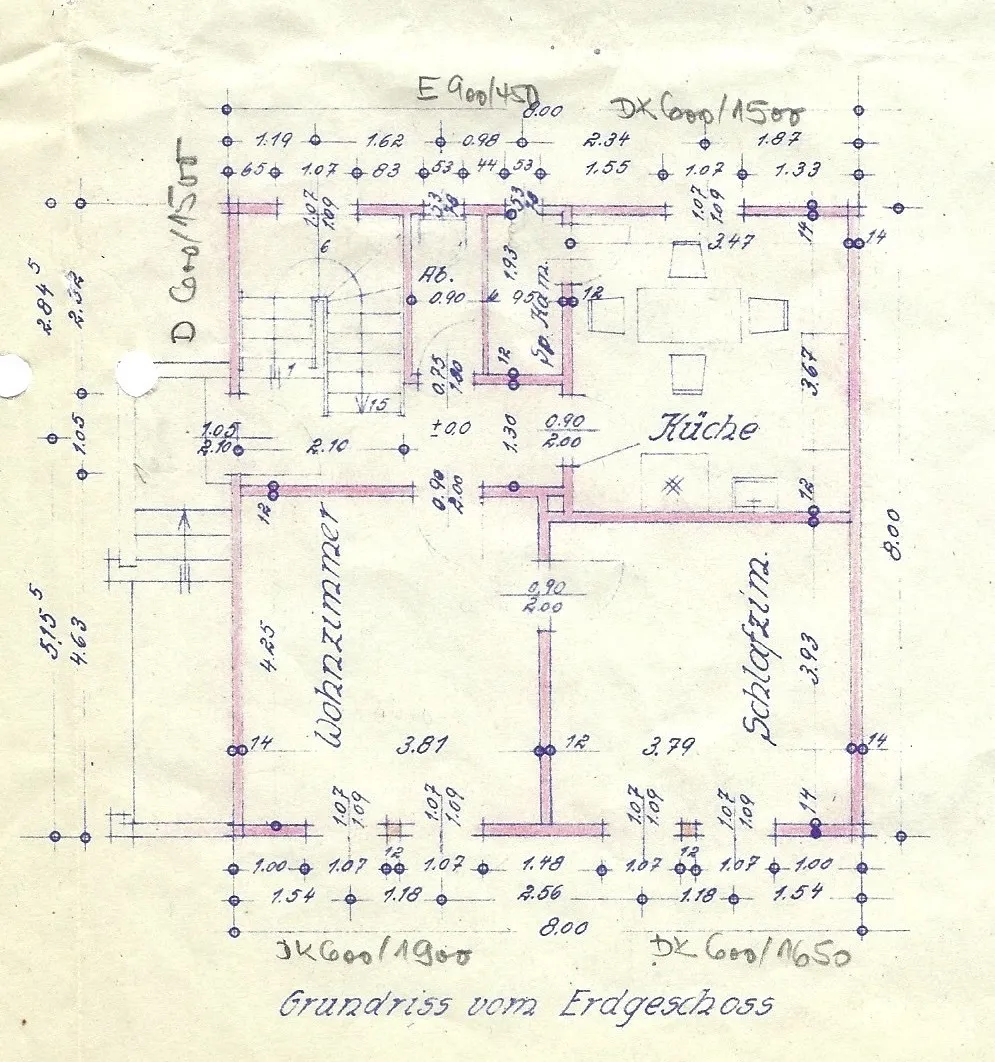 E 900/450
8.00
DK 600/1500
1.19 1.62 0.98 2.34 1.87
65 1.07 83 53 44 53 1.55 1.07 1.33
D 600/1500
1.07
1.09
1.07
1.09
14
3.47
14
6
Ab.
1.93
0.90
95
12
Sp. Kam.
2.84⁵
2.52
1.05
1
15
12
3.67
1.05
2.10
2.10
±0.0
1.30
0.90
2.00
Küche
12
0.90
2.00
12
8.00
0.90
2.00
Wohnzimmer
Schlafzim.
5.15⁵
4.63
4.25
3.93
14
3.81
12
3.79
14
1.07
1.09
1.07
1.09
1.07
1.09
1.07
1.09
14
1.00 1.07 12 1.07 1.48 1.07 12 1.07 1.00
1.54 1.18 2.56 1.18 1.54
8.00
DK 600/1900
DK 600/1650
Grundriss vom Erdgeschoss